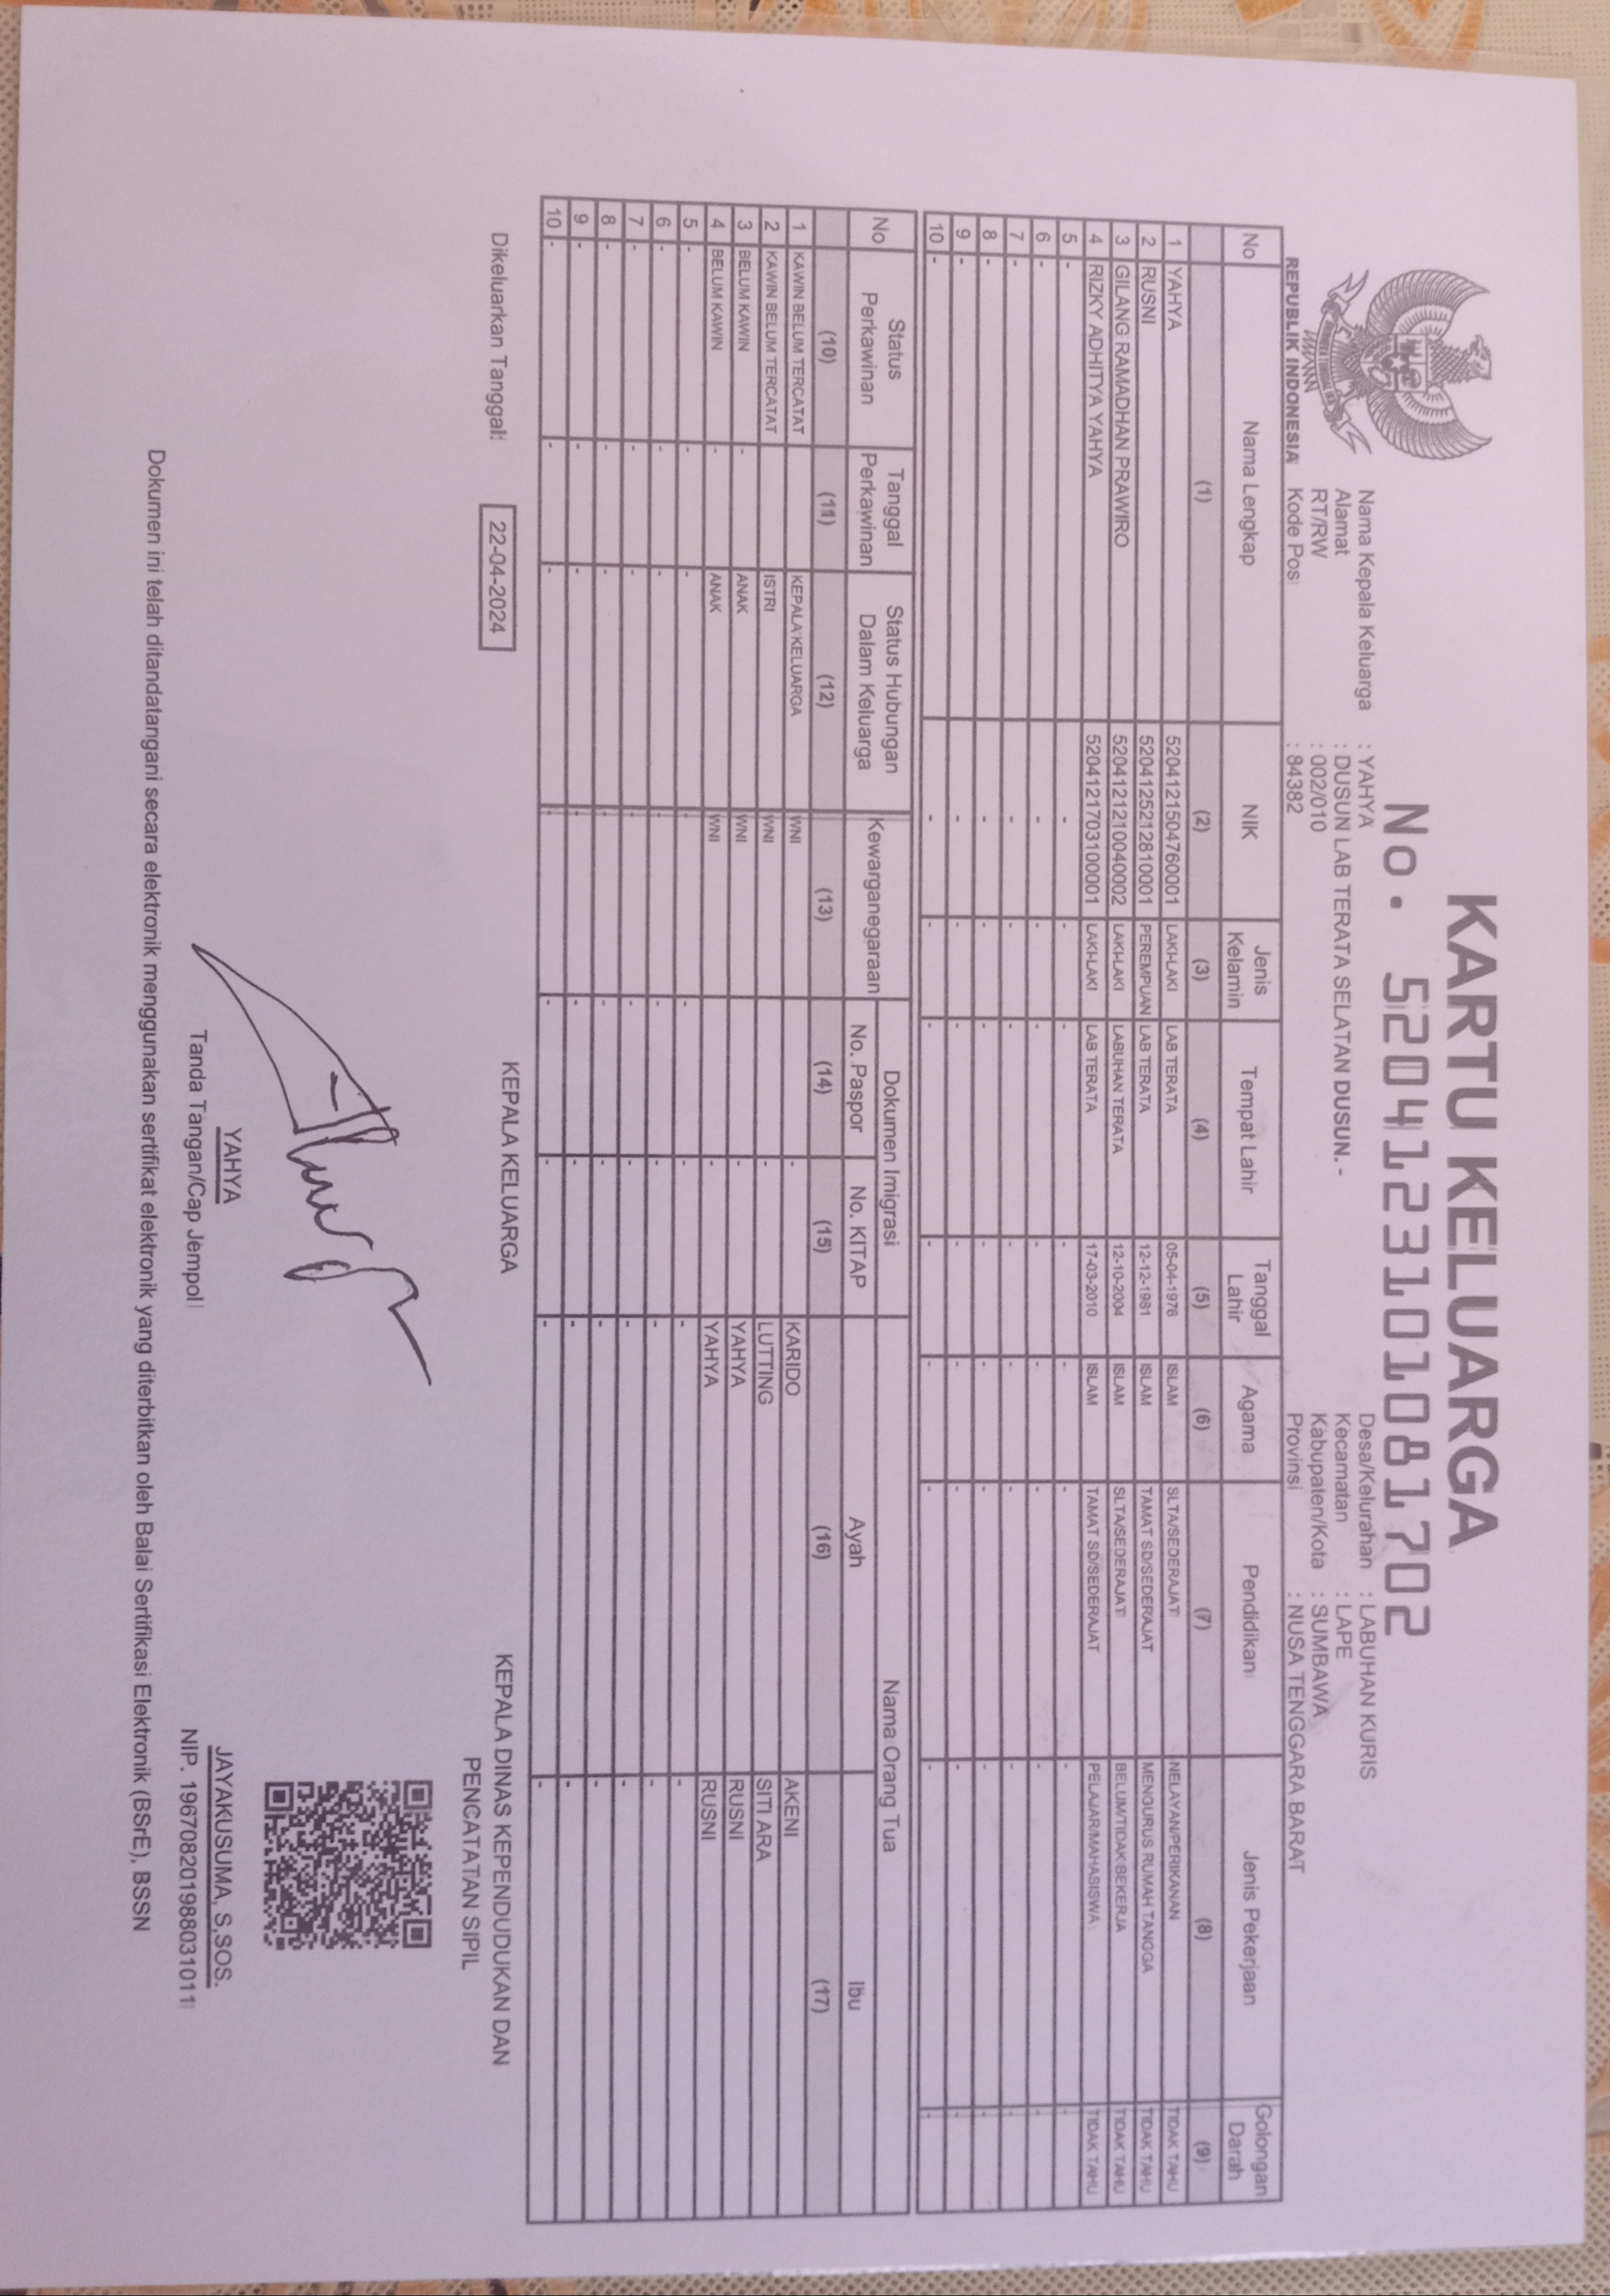 KARTU KELUARGA
No. 5204123101081702
REPUBLIK INDONESIA
Nama Kepala Keluarga : YAHYA
Alamat : DUSUN LAB TERATA SELATAN DUSUN. -
RT/RW : 002/010
Kode Pos : 84382
Desa/Kelurahan : LABUHAN KURIS
Kecamatan : LAPE
Kabupaten/Kota : SUMBAWA
Provinsi : NUSA TENGGARA BARAT
No Nama Lengkap NIK Jenis Kelamin Tempat Lahir Tanggal Lahir Agama Pendidikan Jenis Pekerjaan Golongan Darah
(1) (2) (3) (4) (5) (6) (7) (8) (9)
1 YAHYA 5204121504760001 LAKI-LAKI LAB TERATA 05-04-1976 ISLAM SLTA/SEDERAJAT NELAYAN/PERIKANAN TIDAK TAHU
2 RUSNI 5204125212810001 PEREMPUAN LAB TERATA 12-12-1981 ISLAM TAMAT SD/SEDERAJAT MENGURUS RUMAH TANGGA TIDAK TAHU
3 GILANG RAMADHAN PRAWIRO 5204121210040002 LAKI-LAKI LABUHAN TERATA 12-10-2004 ISLAM SLTA/SEDERAJAT BELUM/TIDAK BEKERJA TIDAK TAHU
4 RIZKY ADHITYA YAHYA 5204121703100001 LAKI-LAKI LAB TERATA 17-03-2010 ISLAM TAMAT SD/SEDERAJAT PELAJAR/MAHASISWA TIDAK TAHU
5 - - - - - - - - -
6 - - - - - - - - -
7 - - - - - - - - -
8 - - - - - - - - -
9 - - - - - - - - -
10 - - - - - - - - -
No Status Perkawinan Tanggal Perkawinan Status Hubungan Dalam Keluarga Kewarganegaraan Dokumen Imigrasi Nama Orang Tua
No. Paspor No. KITAP Ayah Ibu
(10) (11) (12) (13) (14) (15) (16) (17)
1 KAWIN BELUM TERCATAT KEPALA KELUARGA WNI - KARIDO AKENI
2 KAWIN BELUM TERCATAT ISTRI WNI - LUTTING SITI ARA
3 BELUM KAWIN - ANAK WNI - YAHYA RUSNI
4 BELUM KAWIN - ANAK WNI - YAHYA RUSNI
5 - - - - - - - -
6 - - - - - - - -
7 - - - - - - - -
8 - - - - - - - -
9 - - - - - - - -
10 - - - - - - - -
Dikeluarkan Tanggal 22-04-2024
KEPALA KELUARGA
YAHYA
Tanda Tangan/Cap Jempol
KEPALA DINAS KEPENDUDUKAN DAN
PENCATATAN SIPIL
JAYAKUSUMA, S.SOS.
NIP. 196708201988031011
Dokumen ini telah ditandatangani secara elektronik menggunakan sertifikat elektronik yang diterbitkan oleh Balai Sertifikasi Elektronik (BSrE), BSSN